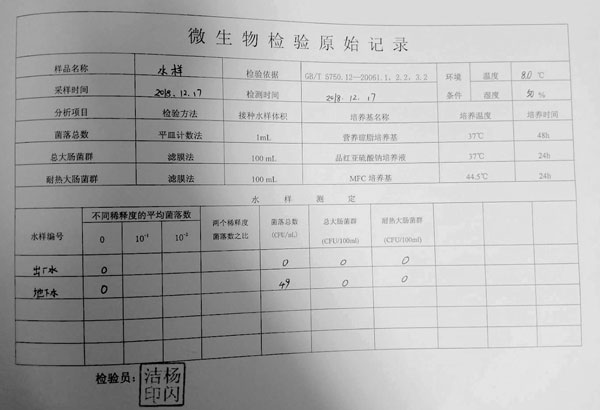 微生物检验原始记录
样品名称 水样 检验依据 GB/T 5750.12—20061.1，2.2，3.2 环境 温度 8.0 ℃
采样时间 2018.12.17 检测时间 2018.12.17 条件 湿度 50 %
分析项目 检验方法 接种水样体积 培养基名称 培养温度 培养时间
菌落总数 平皿计数法 1mL 营养琼脂培养基 37℃ 48h
总大肠菌群 滤膜法 100 mL 品红亚硫酸钠培养液 37℃ 24h
耐热大肠菌群 滤膜法 100 mL MFC 培养基 44.5℃ 24h
水样测定
水样编号 不同稀释度的平均菌落数 两个稀释度菌落数之比 菌落总数 总大肠菌群 耐热大肠菌群
0 10⁻¹ 10⁻² (CFU/mL) (CFU/100ml) (CFU/100ml)
出厂水 0 0 0 0
地下水 0 49 0 0
检验员：
洁杨
印闪